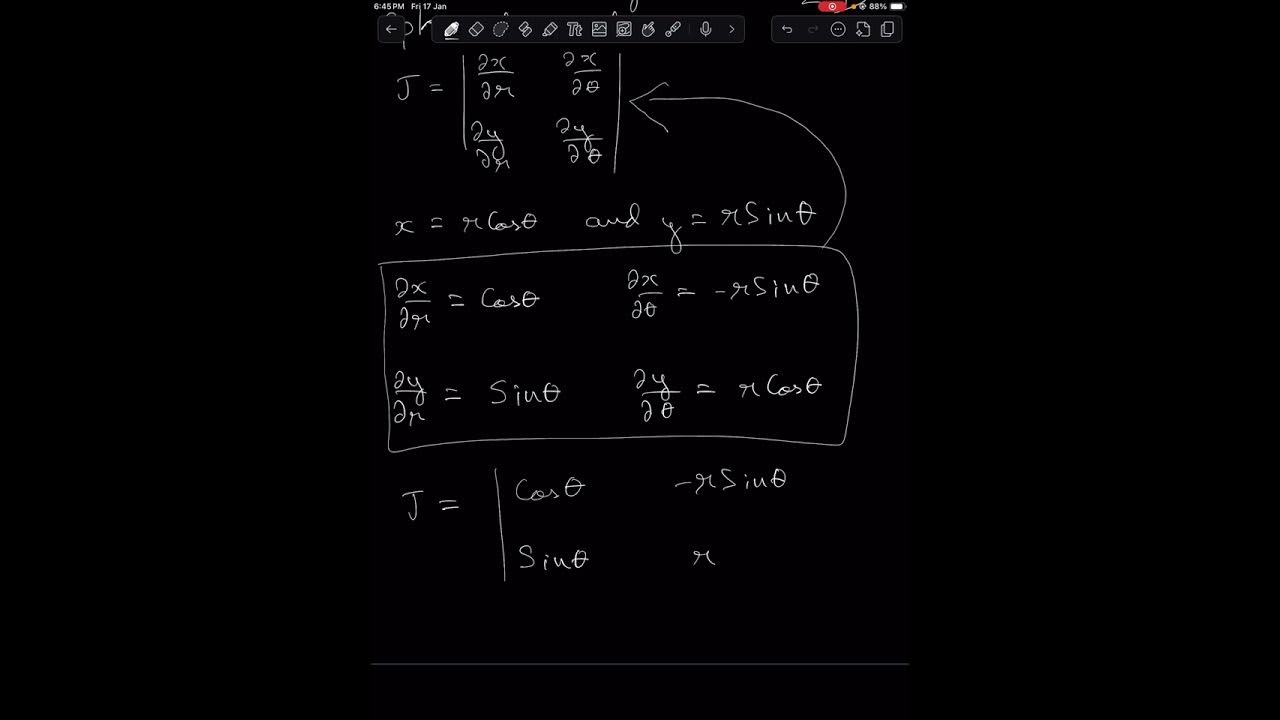 6:45 PM Fri 17 Jan 88%
J = | ∂x/∂r ∂x/∂θ |
| ∂y/∂r ∂y/∂θ |
x = rCosθ and y = rSinθ
∂x/∂r = Cosθ ∂x/∂θ = -rSinθ
∂y/∂r = Sinθ ∂y/∂θ = rCosθ
J = | Cosθ -rSinθ
Sinθ r